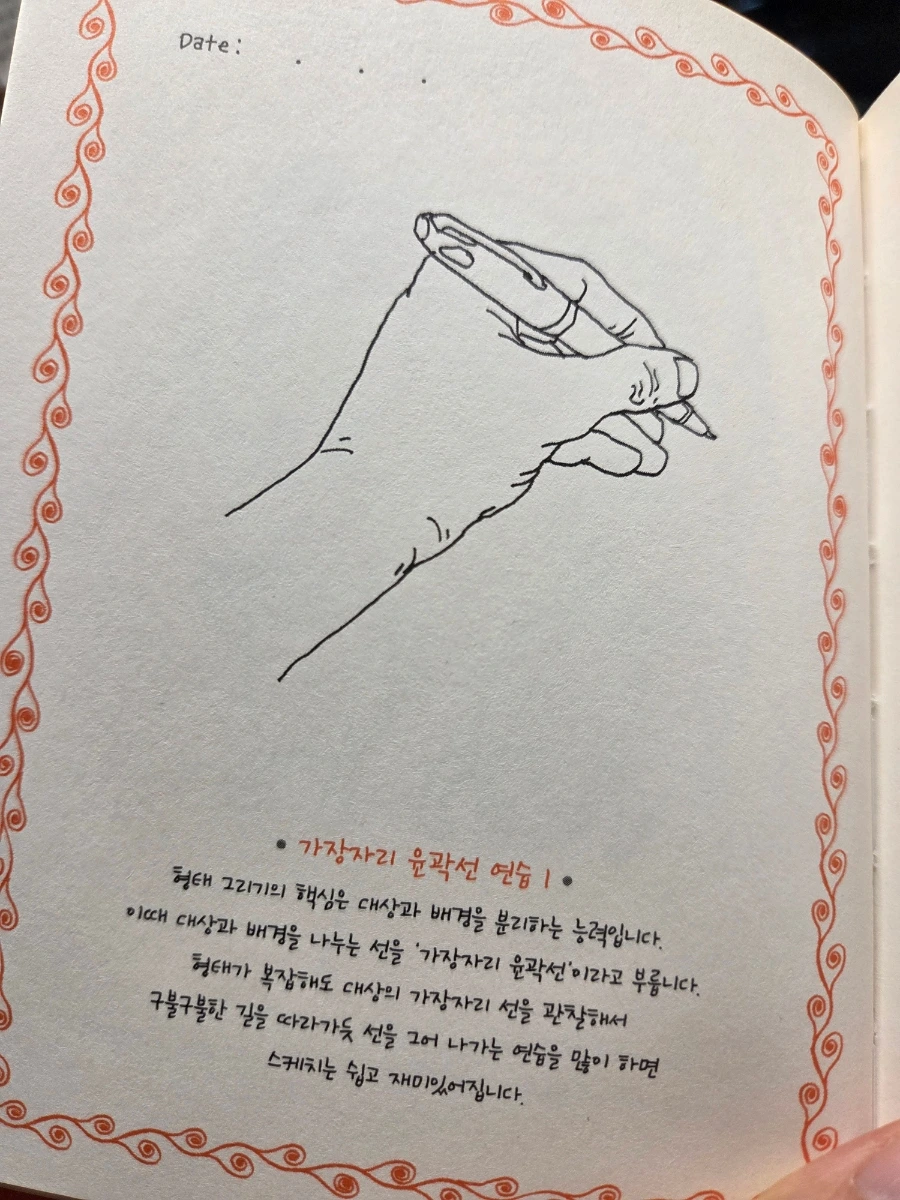 Date :   .   .   .
• 가장자리 윤곽선 연습 1 •
형태 그리기의 핵심은 대상과 배경을 분리하는 능력입니다.
이때 대상과 배경을 나누는 선을 '가장자리 윤곽선'이라고 부릅니다.
형태가 복잡해도 대상의 가장자리 선을 관찰해서
구불구불한 길을 따라가듯 선을 그어 나가는 연습을 많이 하면
스케치는 쉽고 재미있어집니다.